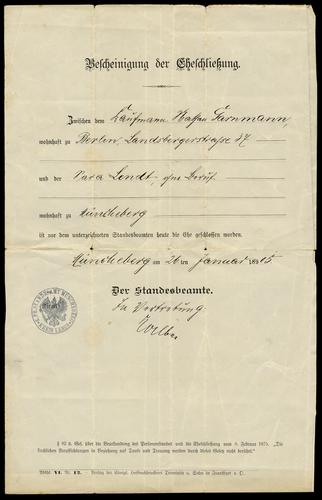 Bescheinigung der Eheschließung.
Zwischen dem Kaufmann Nathan Tarnmann,
wohnhaft zu Berlin, Landsbergerstraße 37
und der Sara Lendt, ohne Beruf
wohnhaft zu Müncheberg
ist vor dem unterzeichneten Standesbeamten heute die Ehe geschlossen worden.
Müncheberg am 26 ten Januar 1885
Der Standesbeamte.
In Vertretung
§ 82 d. Ges. über die Beurkundung des Personenstandes und die Eheschließung vom 6. Februar 1875. „Die
kirchlichen Verpflichtungen in Beziehung auf Taufe und Trauung werden durch dieses Gesetz nicht berührt.“
VI. Nr. 12. Verlag der Königl. Hofbuchdruckerei Trowitzsch u. Sohn in Frankfurt a. O.